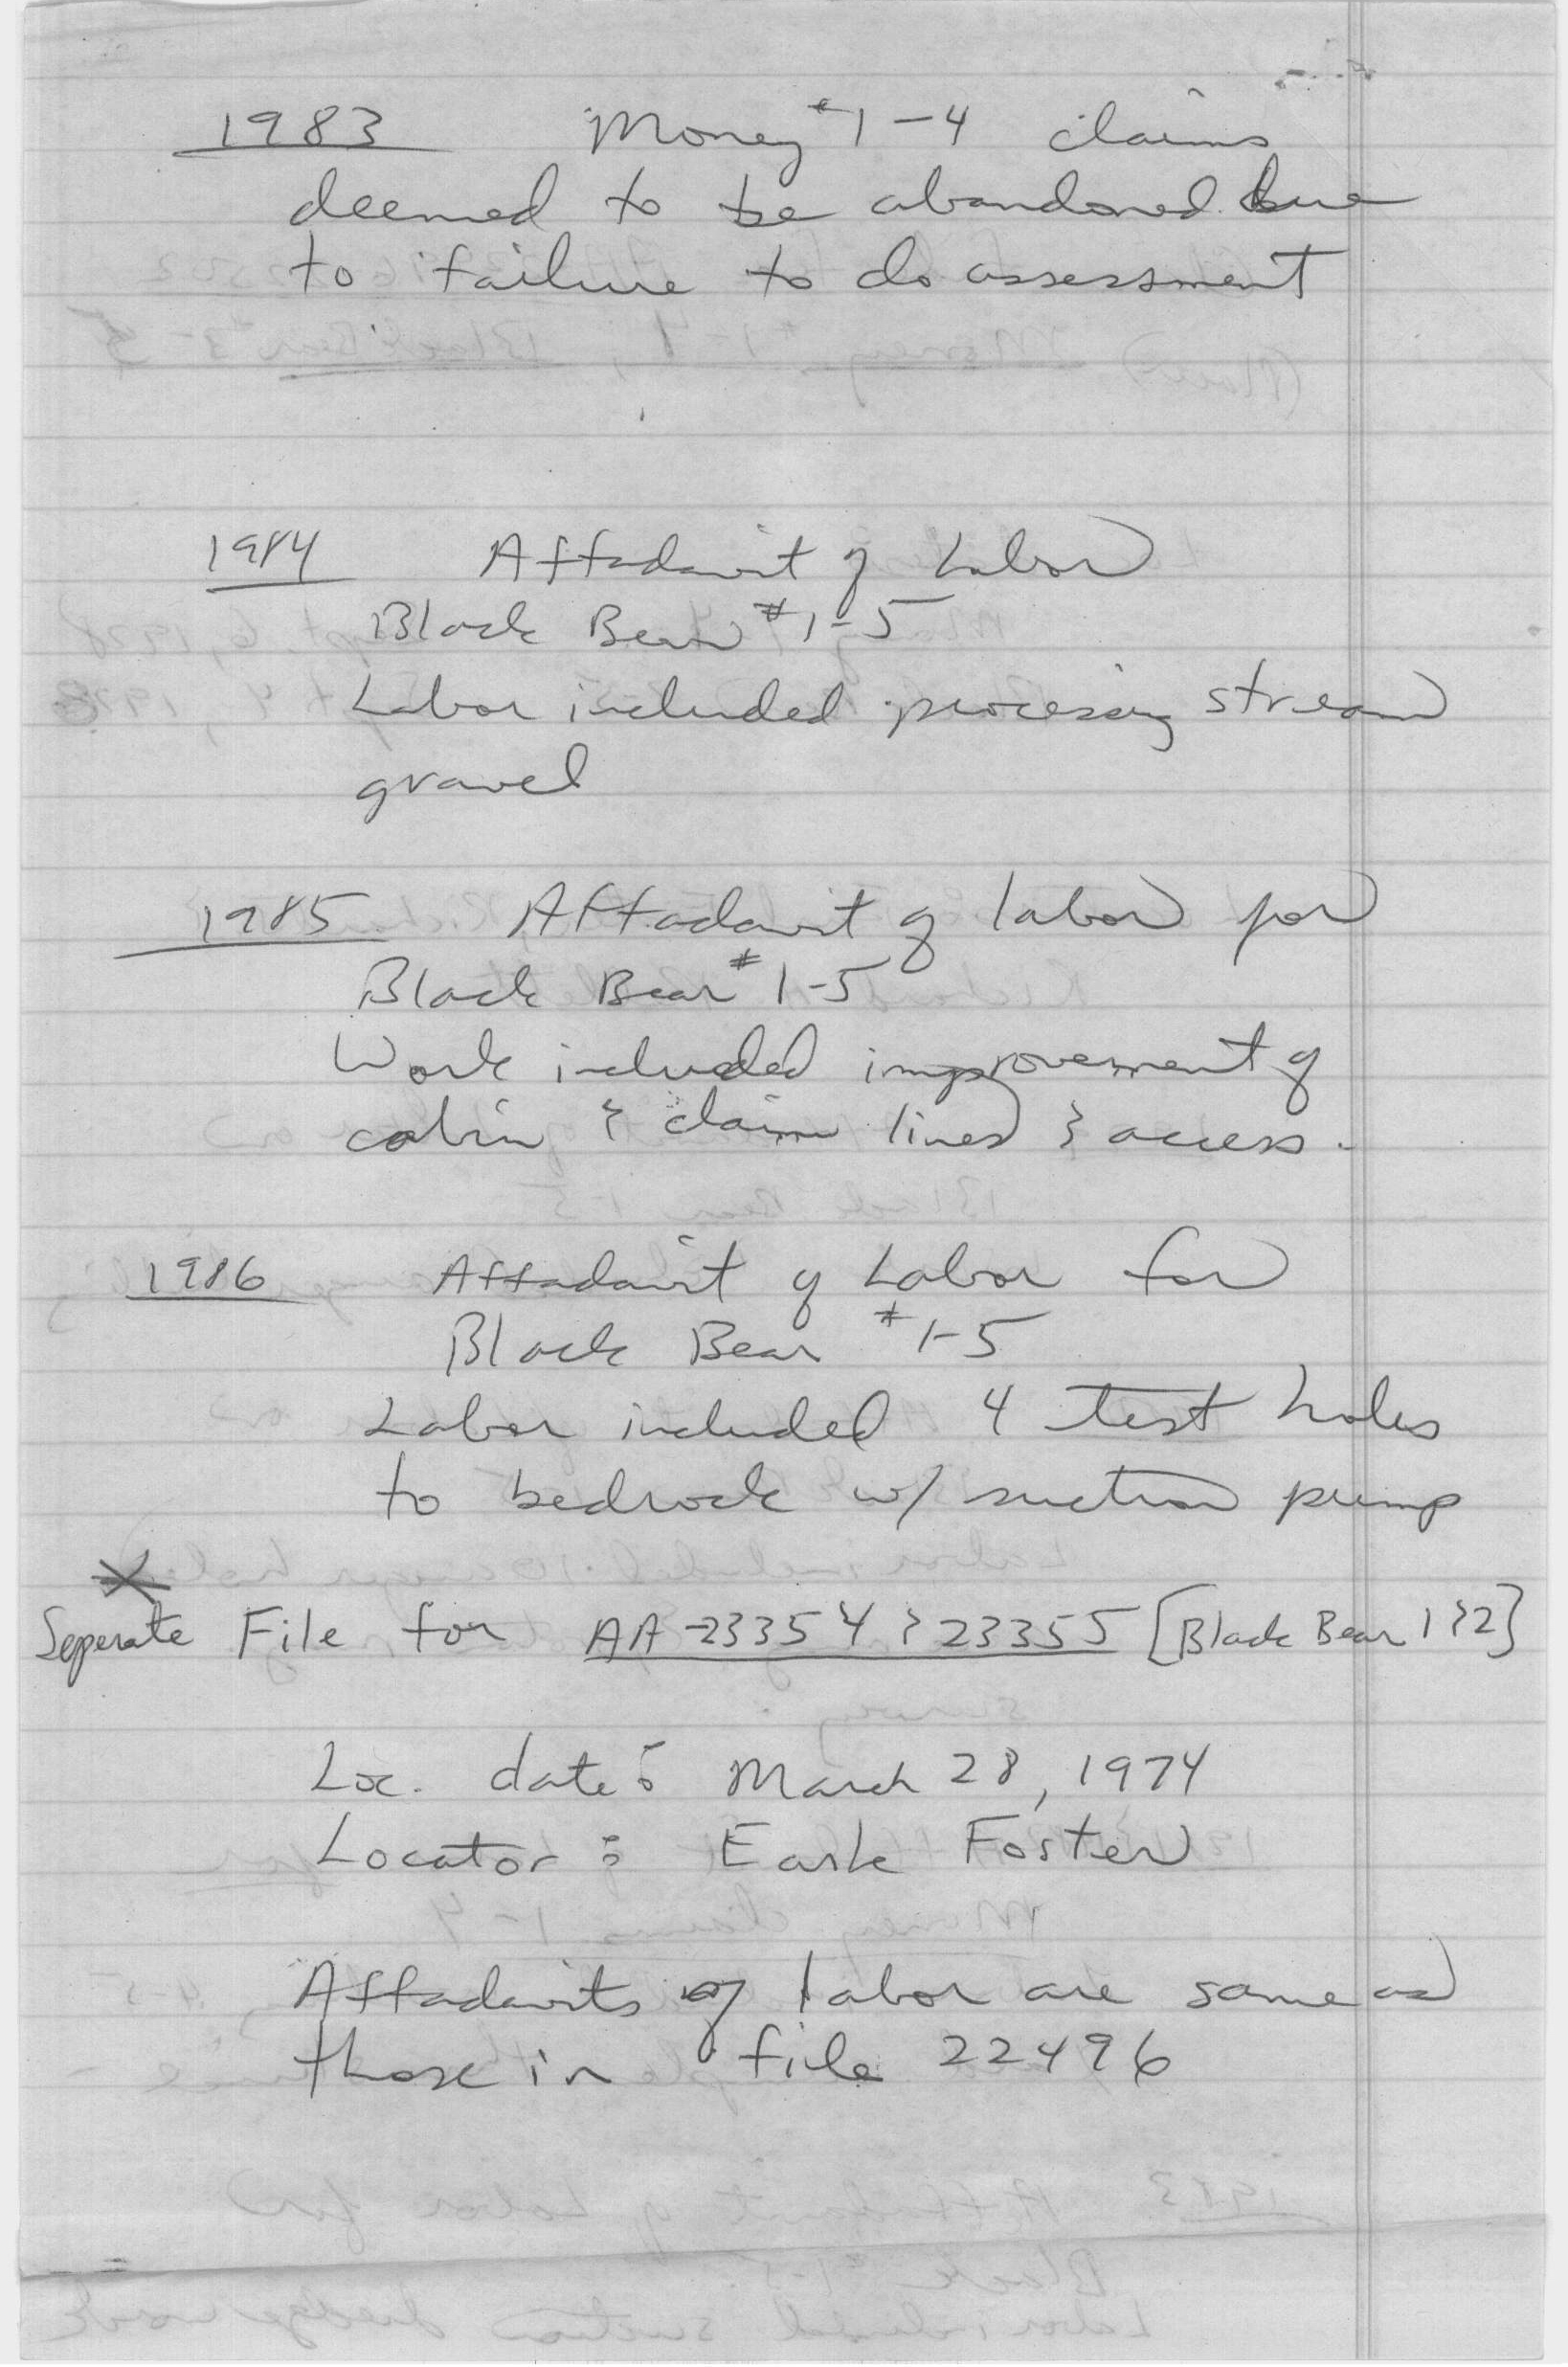 1983 Money #1-4 claims
deemed to be abandoned due
to failure to do assessment
1984 Affadavit of Labor
Black Bear #1-5
Labor included processing stream
gravel
1985 Affadavit of labor for
Black Bear #1-5
Work included improvement of
cabin & claim lines & access.
1986 Affadavit of Labor for
Black Bear #1-5
Labor included 4 test holes
to bedrock w/ suction pump
Seperate File for AA-23354 & 23355 [Black Bear 1&2]
Loc. date: March 28, 1974
Locator: Earle Foster
Affadavits of labor are same as
those in file 22496